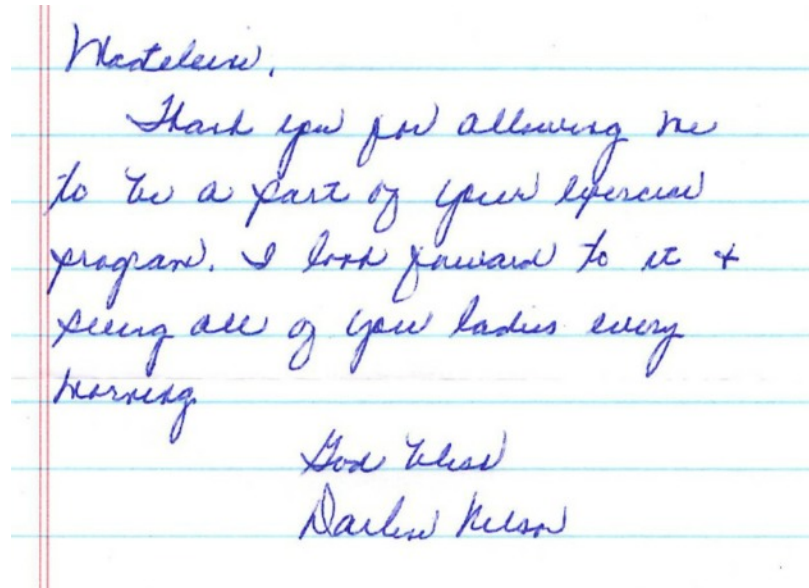 Madeleine,
Thank you for allowing me
to be a part of your exercise
program. I look forward to it +
seeing all of you ladies every
morning
God bless
Darlene Nelson